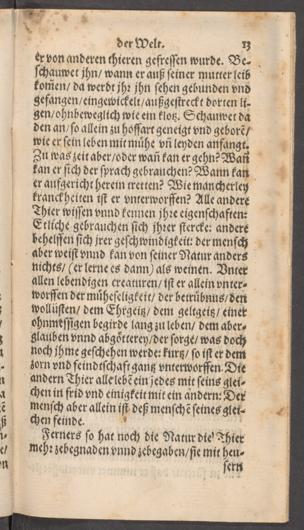 der Welt. 13
er von anderen thieren gefressen wurde. Be-
schauwet jhn/ wann er auß seiner mutter leib
kom̃en/ da werdt jhr jhn sehen gebunden vnd
gefangen/ eingewickelt/ außgestreckt dorten li-
gen/ ohnbeweglich wie ein klotz. Schauwet da
den an/ so allein zu hoffart geneigt vnd geborẽ/
wie er sein leben mit mühe vñ leyden anfangt.
Zu was zeit aber/ oder wañ kan er gehn? Wañ
kan er sich der sprach gebrauchen? Wann kan
er aufgericht herein tretten? Wie mancherley
kranckheiten ist er vnterworffen? Alle andere
Thier wissen vnnd kennen jhre eigenschaften:
Etliche gebrauchen sich jhrer stercke: andere
behelffen sich jrer geschwindigkeit: der mensch
aber weist vnnd kan von seiner Natur anders
nichts/ (er lerne es dann) als weinen. Vnter
allen lebendigen creaturen/ ist er allein vnter-
worffen der müheseligkeit/ der betrübnuß/ den
wollüsten/ dem Ehrgeitz/ dem geltgeitz/ einer
ohnmessigen begirde lang zu leben/ dem aber-
glauben vnnd abgötterey/ der sorge/ was doch
noch jhme geschehen werde: kurtz/ so ist er dem
zorn vnd feindtschaft gantz vnterworffen. Die
andern Thier alle lebẽ ein jedes mit seins glei-
chen in frid vnd einigkeit mit ein andern: Der
mensch aber allein ist deß menschẽ seines glei-
chen feinde.
Ferners so hat noch die Natur die Thier
mehr zebegnaden vnnd zebegaben/ sie mit heu-
sern